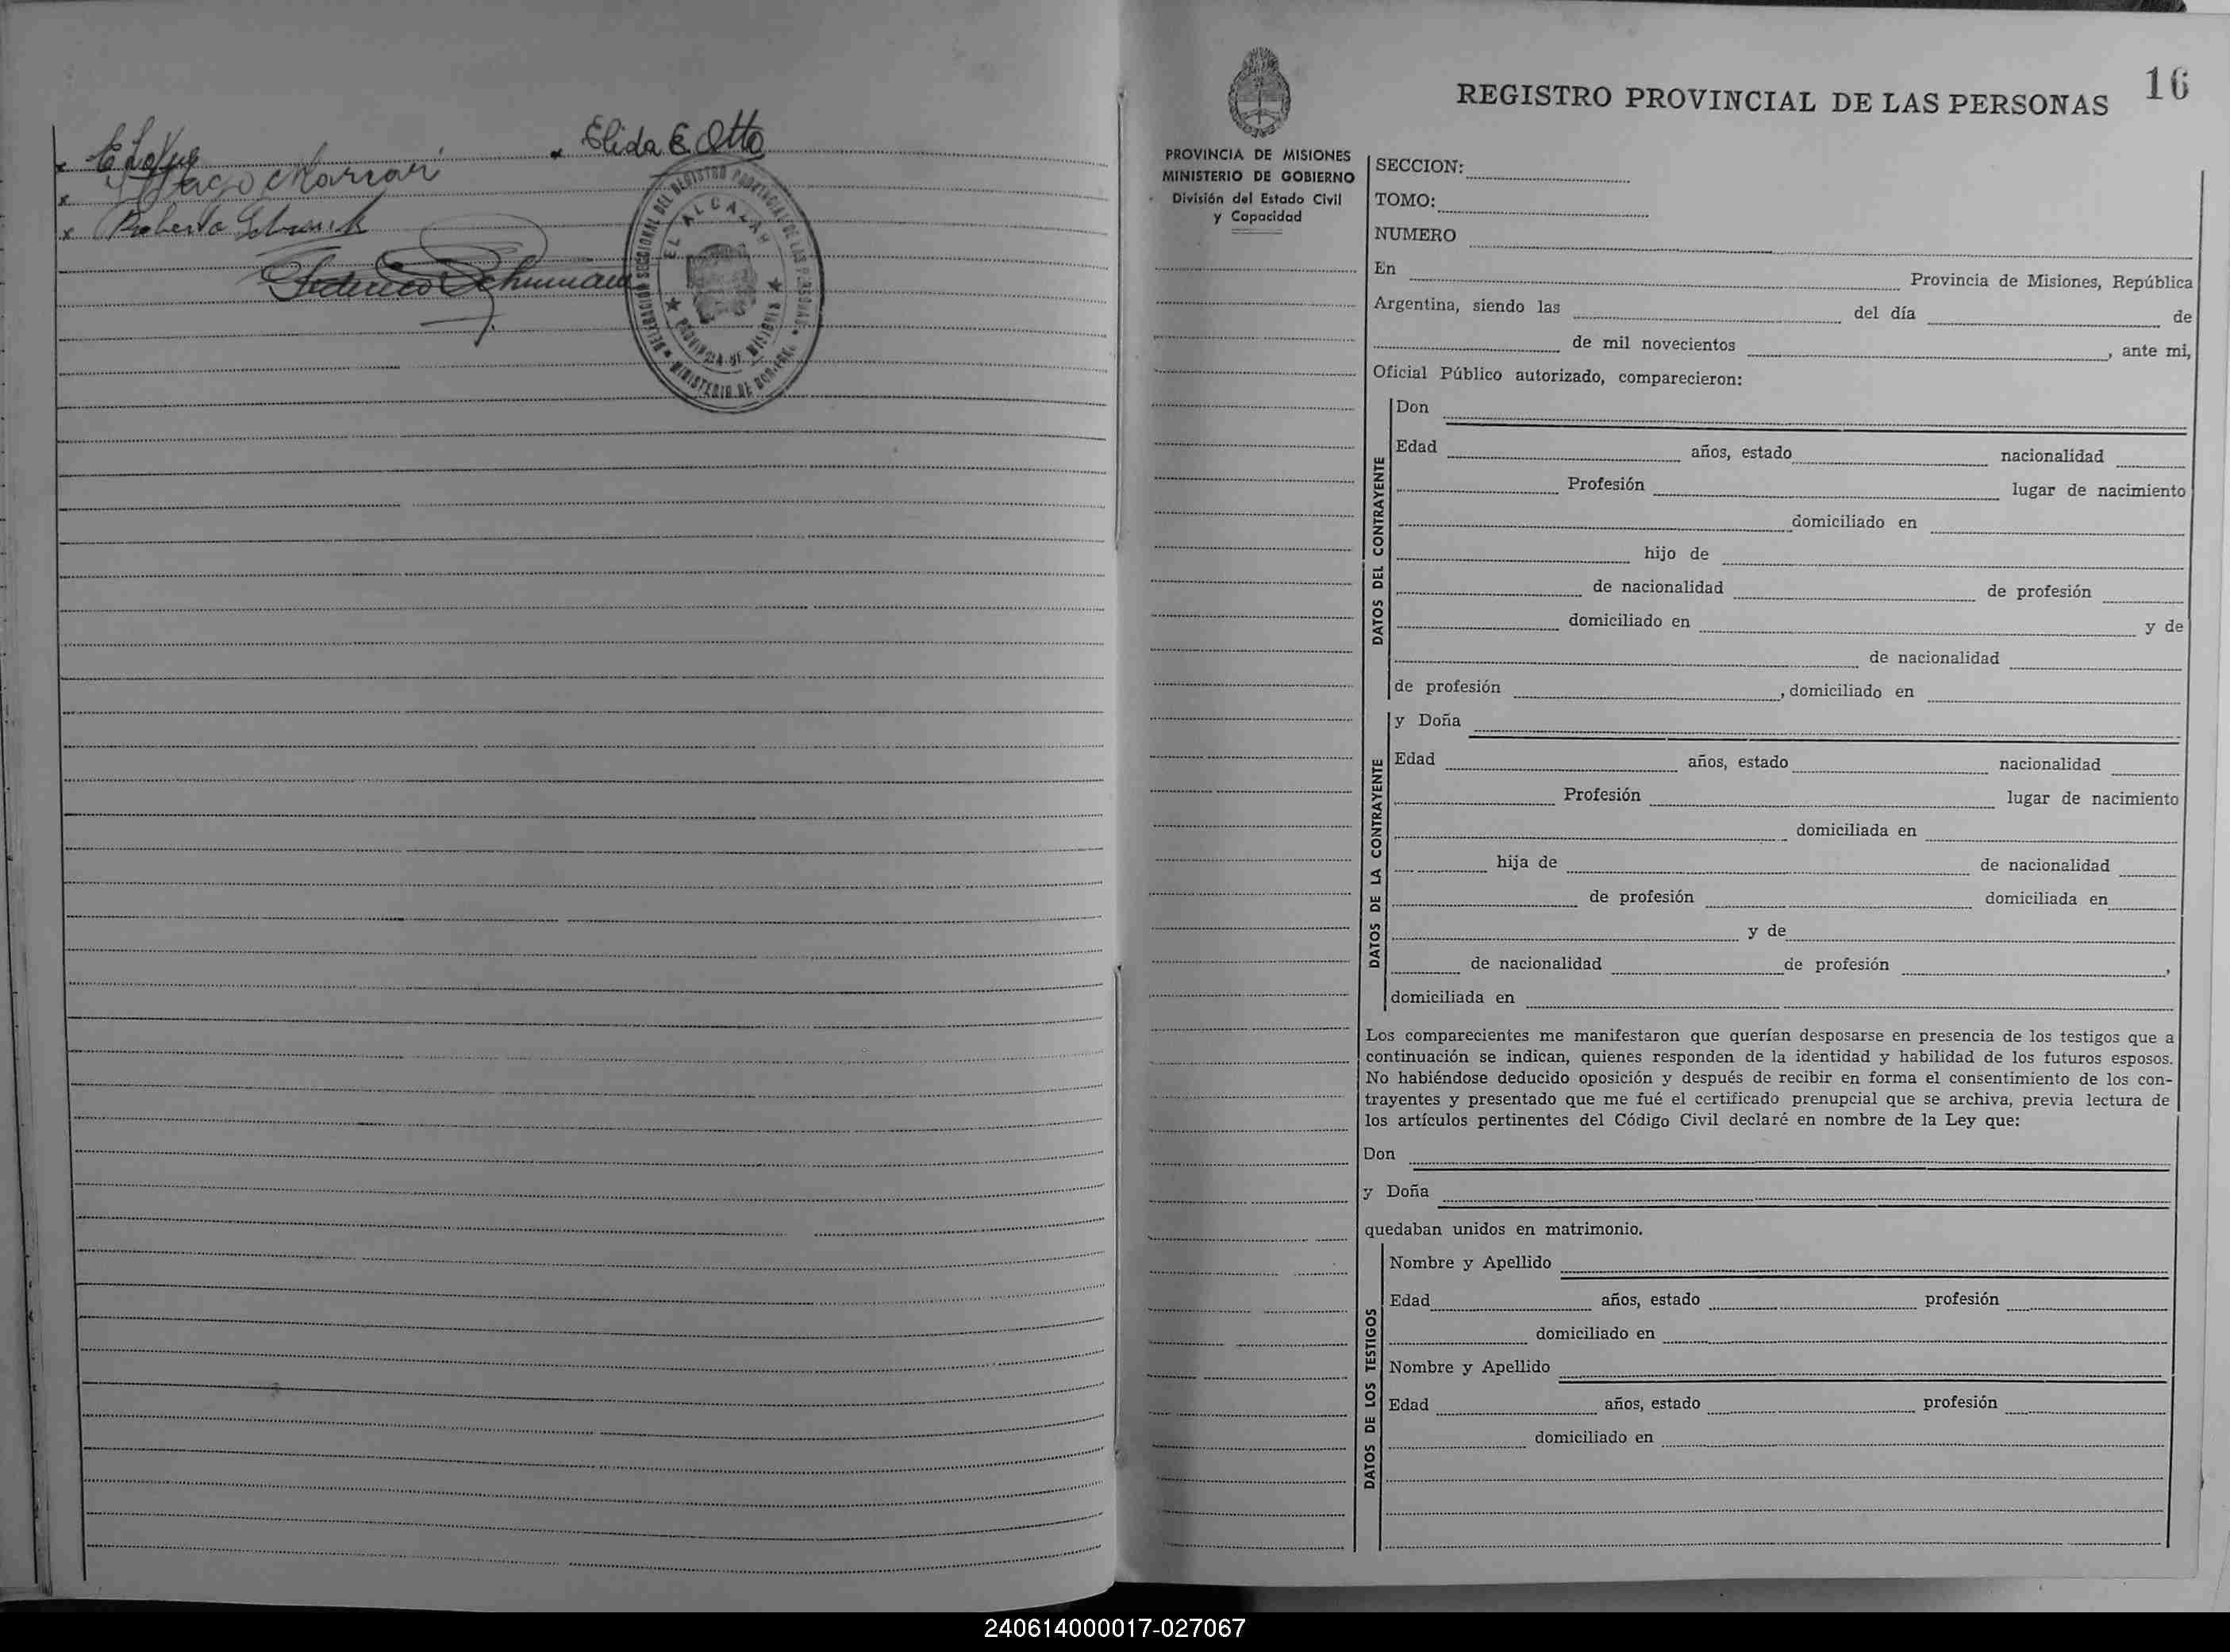 Elida E. Otto
Roberto
Federico Schumann
DELEGACION SECCIONAL DEL REGISTRO PROVINCIAL DE LAS PERSONAS
EL ALCAZAR
PROVINCIA DE MISIONES
MINISTERIO DE GOBIERNO
16
REGISTRO PROVINCIAL DE LAS PERSONAS
PROVINCIA DE MISIONES
MINISTERIO DE GOBIERNO
División del Estado Civil
y Capacidad
SECCION:
TOMO:
NUMERO
En Provincia de Misiones, República
Argentina, siendo las del día de
de mil novecientos , ante mi,
Oficial Público autorizado, comparecieron:
DATOS DEL CONTRAYENTE
Don
Edad años, estado nacionalidad
Profesión lugar de nacimiento
domiciliado en
hijo de
de nacionalidad de profesión
domiciliado en y de
de nacionalidad
de profesión , domiciliado en
DATOS DE LA CONTRAYENTE
y Doña
Edad años, estado nacionalidad
Profesión lugar de nacimiento
domiciliada en
hija de de nacionalidad
de profesión domiciliada en
y de
de nacionalidad de profesión ,
domiciliada en
Los comparecientes me manifestaron que querían desposarse en presencia de los testigos que a
continuación se indican, quienes responden de la identidad y habilidad de los futuros esposos.
No habiéndose deducido oposición y después de recibir en forma el consentimiento de los con-
trayentes y presentado que me fué el certificado prenupcial que se archiva, previa lectura de
los artículos pertinentes del Código Civil declaré en nombre de la Ley que:
Don
y Doña
quedaban unidos en matrimonio.
DATOS DE LOS TESTIGOS
Nombre y Apellido
Edad años, estado profesión
domiciliado en
Nombre y Apellido
Edad años, estado profesión
domiciliado en
240614000017-027067